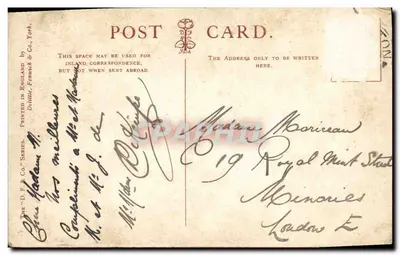 POST CARD.
THIS SPACE MAY BE USED FOR
INLAND CORRESPONDENCE,
BUT NOT WHEN SENT ABROAD.
THE ADDRESS ONLY TO BE WRITTEN
HERE.
THE "D. F. & Co." SERIES. PRINTED IN ENGLAND by
Delittle, Fenwick & Co., York.
Chère Madame M.
Nos meilleurs
Compliments à Mr et Madame
M. et Mr J. de
Mr et Mme
Madame Moriceau
C 19 Royal Mint Street
Minories
London E